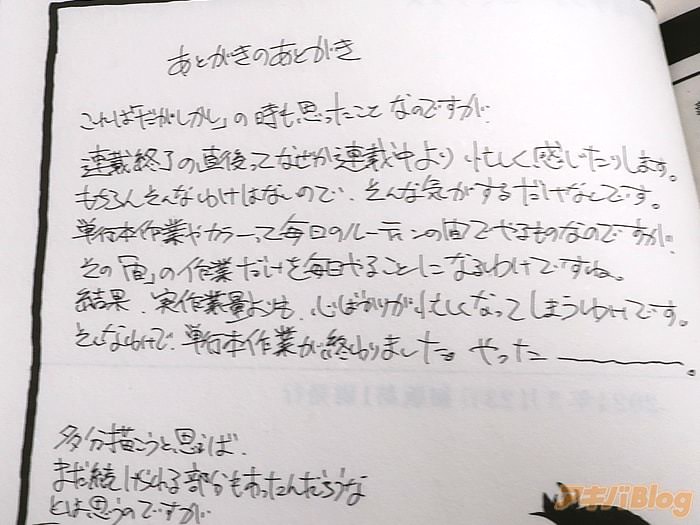 あとがきのあとがき
これは「だがしかし」の時も思ったことなのですが
連載終了の直後ってなぜか連載中より忙しく感じたりします。
もちろんそんなわけはないので、そんな気がするだけなんです。
単行本作業やカラーって毎日のルーティンの間でやるものなのですが
その「間」の作業だけを毎日やることになるわけですね。
結果、実作業量よりも、心ばかりが忙しくなってしまうわけです。
そんなわけで、単行本作業が終わりました。やったー。
多分描こうと思えば、
まだ続けられる部分もあったんだろうな
とは思うのですが
アキバBlog